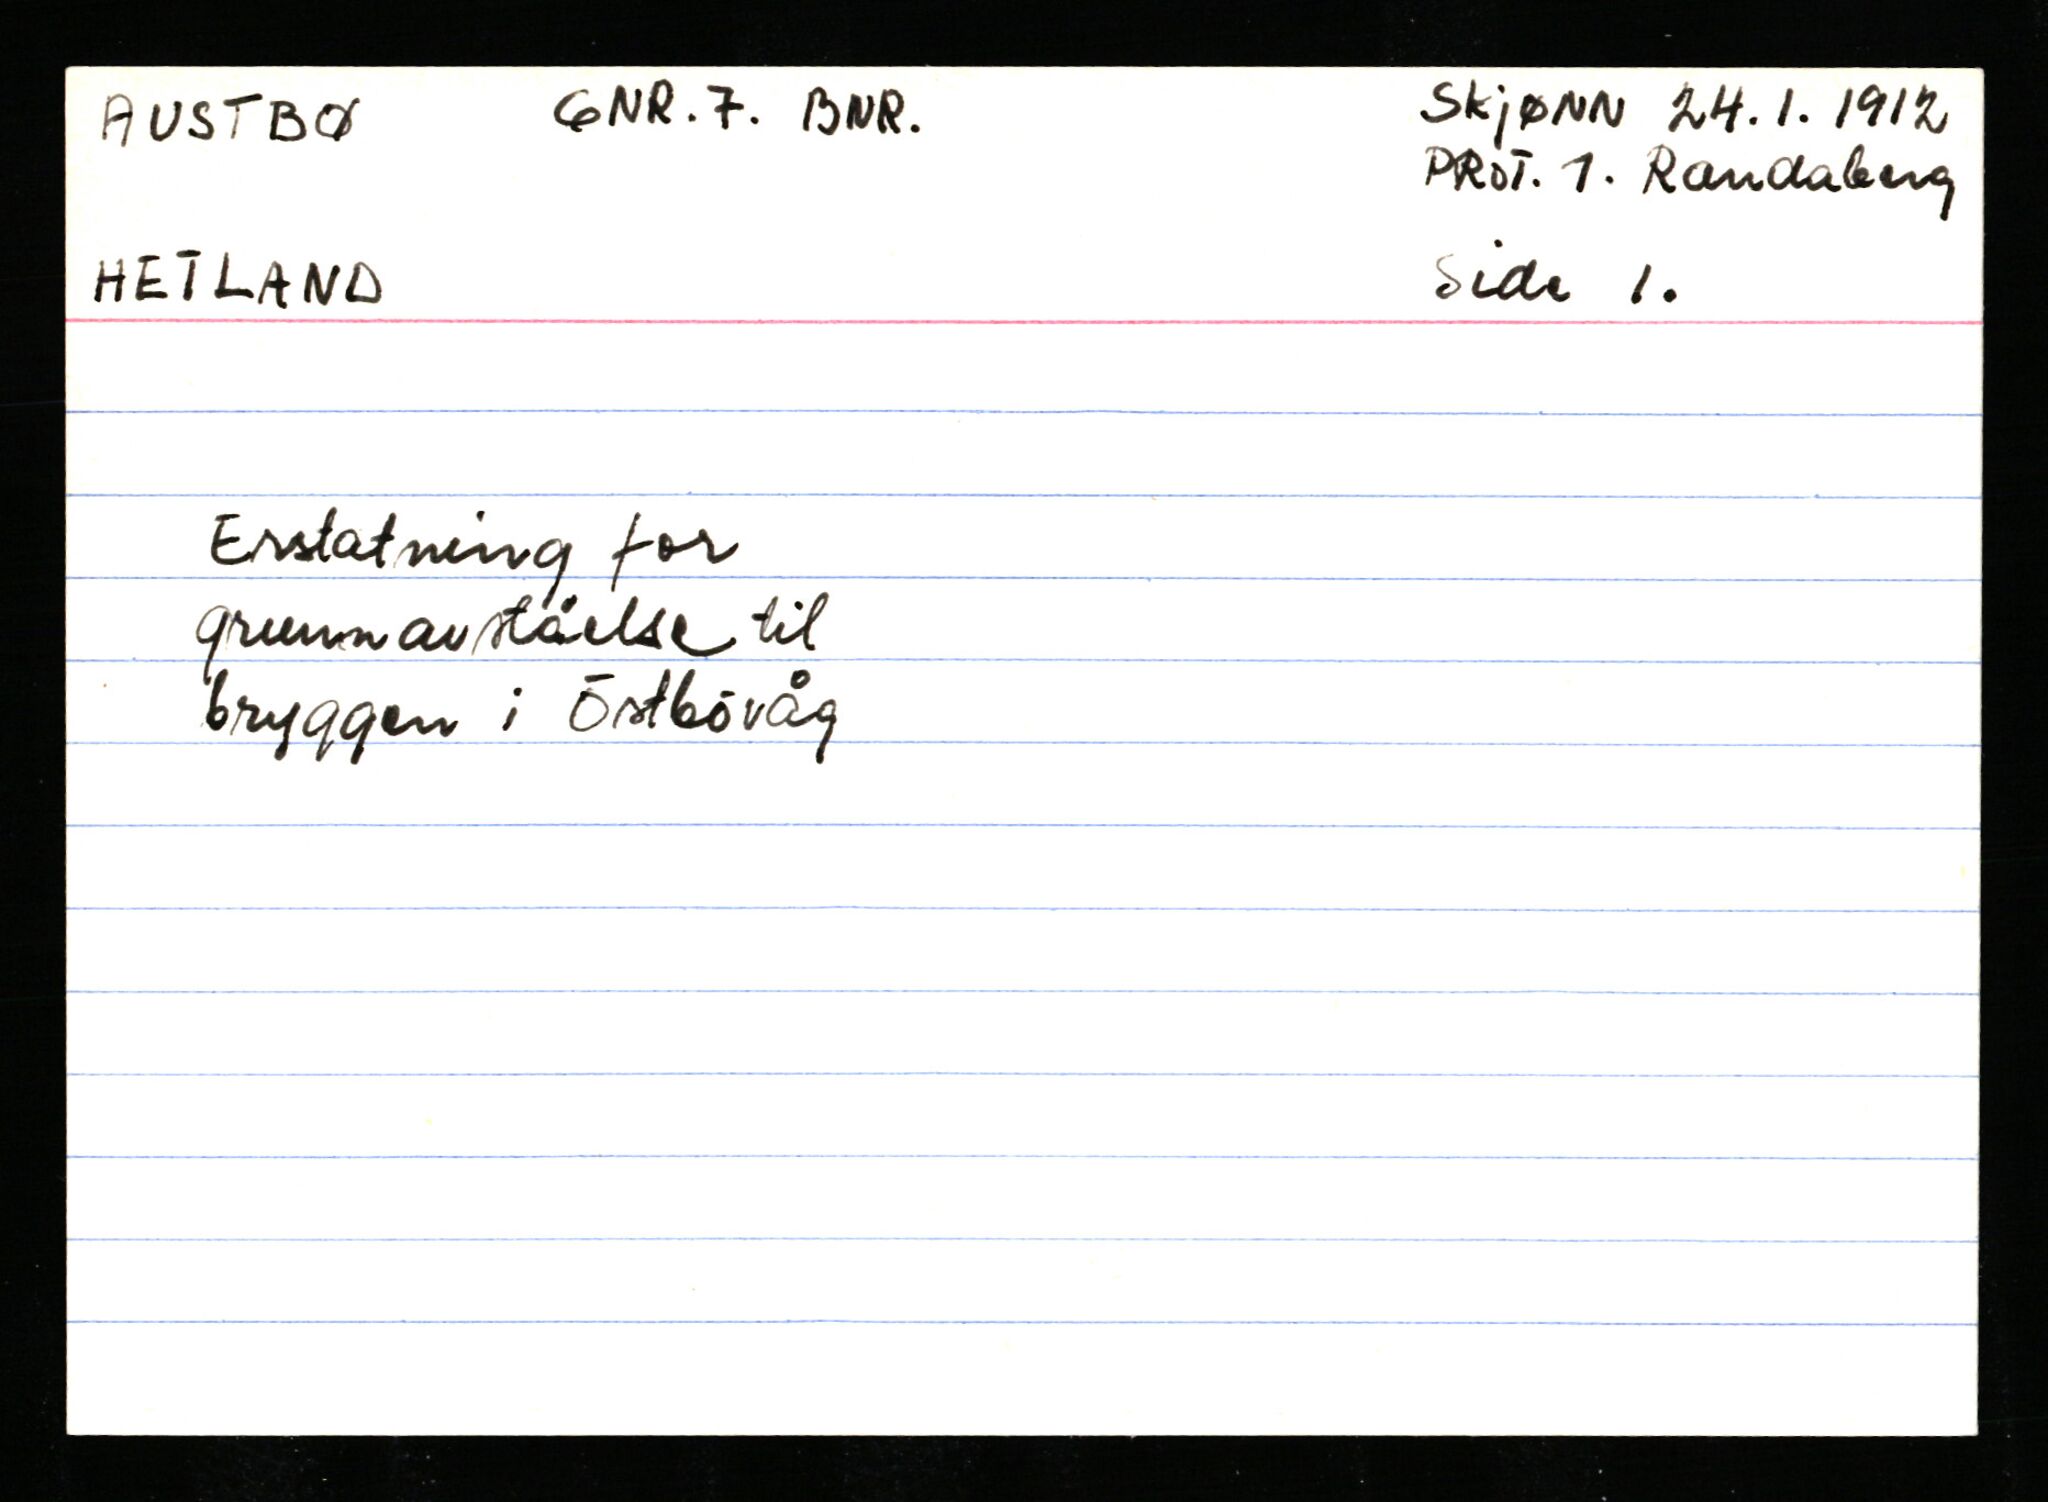 AUSTBØ GNR. 7. BNR. Skjønn 24.1.1912
PROT. 1. Randaberg
HETLAND Side 1.
Erstatning for
grunnavståelse til
bryggen i Östbövåg